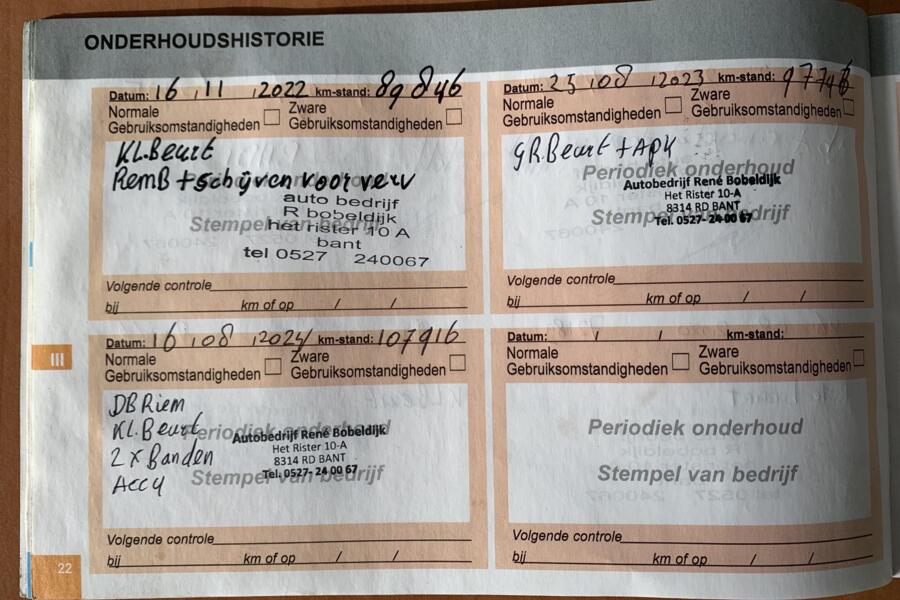 ONDERHOUDSHISTORIE
Datum: 16 / 11 / 2022 km-stand: 89846
Normale Gebruiksomstandigheden
Zware Gebruiksomstandigheden
KL.Beurt
RemB + schijven voor verv
auto bedrijf
R bobeldijk
het rister 10 A
bant
tel 0527 240067
Stempel van bedrijf
Volgende controle
bij km of op / /
Datum: 25 / 08 / 2023 km-stand: 97746
Normale Gebruiksomstandigheden
Zware Gebruiksomstandigheden
GR.Beurt + APK
Periodiek onderhoud
Autobedrijf René Bobeldijk
Het Rister 10-A
8314 RD BANT
Tel. 0527- 24 00 67
Stempel van bedrijf
Volgende controle
bij km of op / /
Datum: 16 / 08 / 2024 km-stand: 107916
Normale Gebruiksomstandigheden
Zware Gebruiksomstandigheden
DB Riem
KL.Beurt
2 x Banden
Accu
Periodiek onderhoud
Autobedrijf René Bobeldijk
Het Rister 10-A
8314 RD BANT
Tel. 0527- 24 00 67
Stempel van bedrijf
Volgende controle
bij km of op / /
Datum: / / km-stand:
Normale Gebruiksomstandigheden
Zware Gebruiksomstandigheden
Periodiek onderhoud
Stempel van bedrijf
Volgende controle
bij km of op / /
III
22